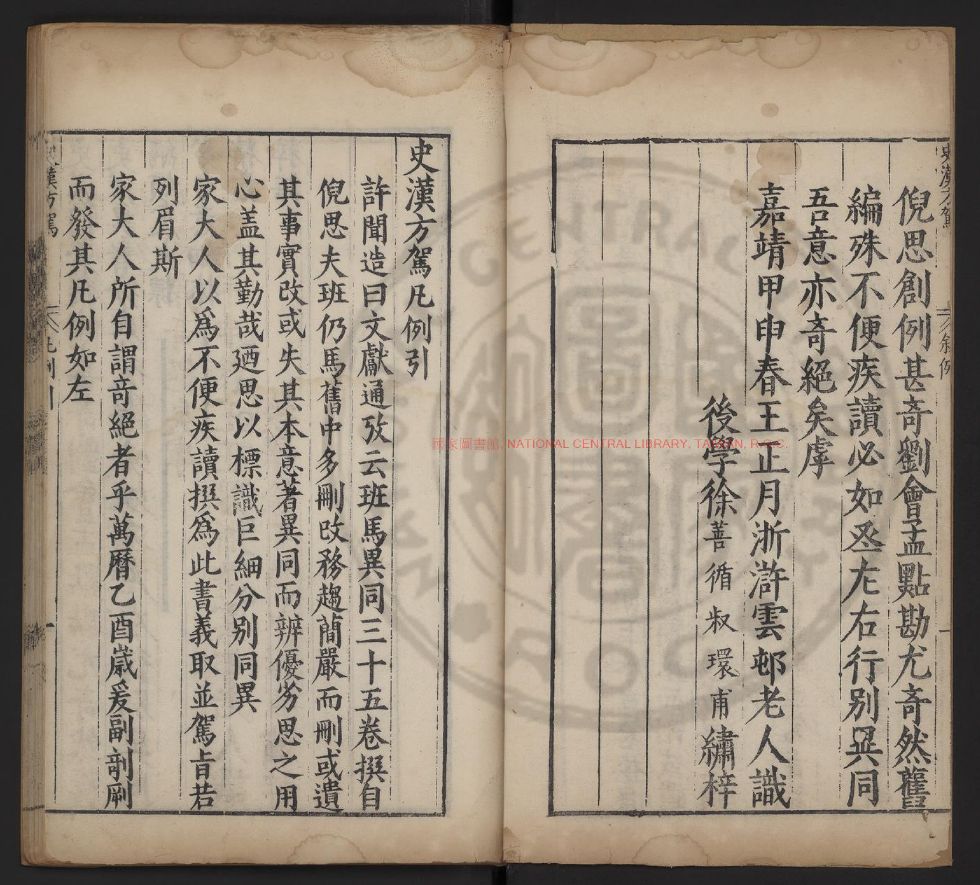 倪思創例甚奇劉會孟點勘尤奇然舊
編殊不便疾讀必如丞左右行別異同
吾意亦奇絕矣虖
嘉靖甲申春王正月浙滸雲邨老人識
後學徐善循叔環甫繡梓
史漢方駕凡例引
許聞造曰文獻通攷云班馬異同三十五卷撰自
倪思夫班仍馬舊中多刪改務趨蕳嚴而刪或遺
其事實改或失其本意著異同而辨優劣思之用
心盖其勤哉廼思以標識巨細分別同異
家大人以爲不便疾讀撰爲此書義取並駕旨若
列眉斯
家大人所自謂竒絕者乎萬曆乙酉歲爰副剞劂
而發其凡例如左
國家圖書館, NATIONAL CENTRAL LIBRARY, TAIWAN, R.O.C.